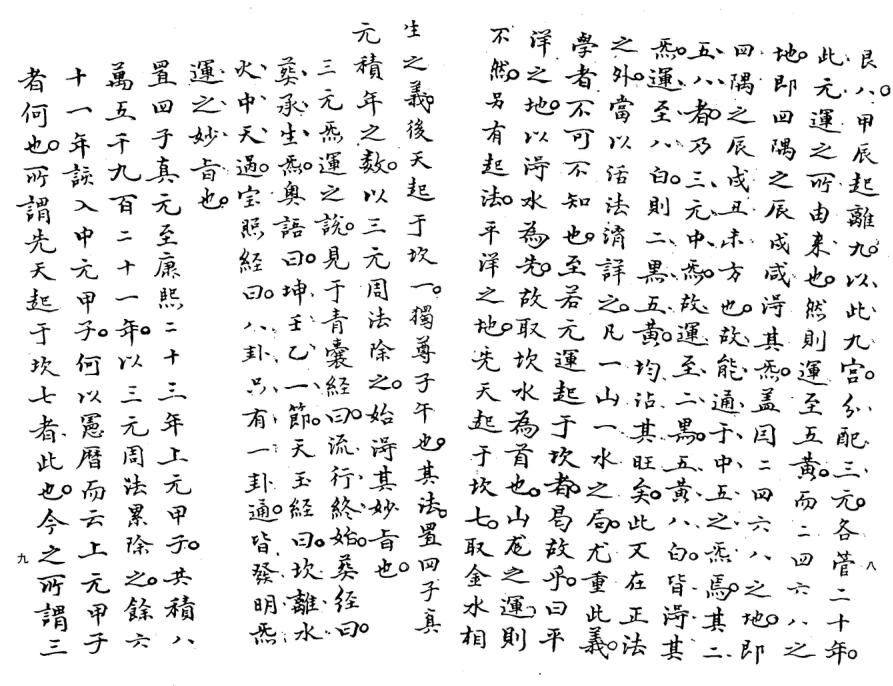 艮八。甲辰起離九。以此九宮分配三元。各管二十年。
此元運之所由来也。然則運至五黃。而二四六八之
地。即四隅之辰戌咸淂其炁。盖因二四六八之地。即
四隅之辰戌丑未方也。故能通于中五之炁焉。其二
五八者。乃三元中炁。故運至二黑。五黃。八白。皆淂其
炁。運至八白。則二黑五黃。均沾其旺矣。此又在正法
之外。當以活法消詳之。凡一山一水之局。尤重此義。
學者不可不知也。至若元運起于坎者。曷故乎。曰平
洋之地。以淂水為先。故取坎水為首也。山龙之運則
不然。另有起法。平洋之地。先天起于坎七。取金水相
八
生之義。後天起于坎一。獨尊子午也。其法。置四子真
元積年之数。以三元周法除之。始淂其妙旨也。
三元炁運之說。見于青囊經曰。流行終始。葬經曰。
葬承生炁。奥語曰。坤壬乙一節。天玉經曰。坎離水
火中天過。宝照經曰。八卦只有一卦通。皆發明炁
運之妙旨也。
置四子真元至康熙二十三年上元甲子。共積八
萬五千九百二十一年。以三元周法累除之。餘六
十一年。該入中元甲子。何以憲暦而云上元甲子
者何也。所謂先天起于坎七者。此也。今之所謂三
九